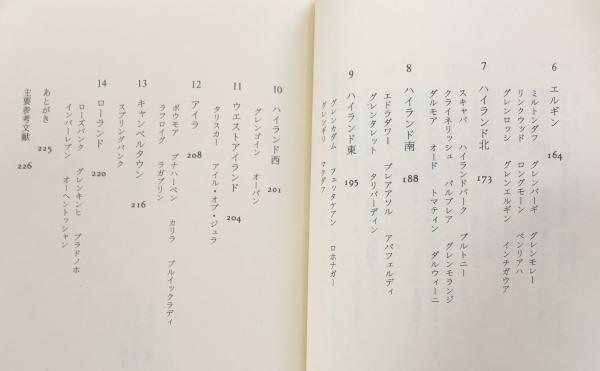 6 エルギン 164
ミルトンダフ グレンバーギ グレンモレー
リンクウッド ロングモーン ベンリアハ
グレンロッシ グレンエルギン インチガウア
7 ハイランド北 173
スキャパ ハイランドパーク プルトニー
クライネリッシュ バルブレア グレンモランジ
ダルモア オード トマティン ダルウィーニ
8 ハイランド南 188
エドラダワー ブレアアソル アバフェルディ
グレンタレット タリバーディン
9 ハイランド東 195
グレンカダム フェッタケアン ロホナガー
グレンギリ マクダフ
10 ハイランド西 201
グレンゴイン オーバン
11 ウエストアイランド 204
タリスカー アイル・オブ・ジュラ
12 アイラ 208
ボウモア ブナハーベン カリラ ブルイックラディ
ラフロイグ ラガブリン
13 キャンベルタウン 216
スプリングバンク
14 ローランド 220
ローズバンク グレンキンヒ ブラドノホ
インバーレブン オーヘントッシャン
あとがき 225
主要参考文献 226